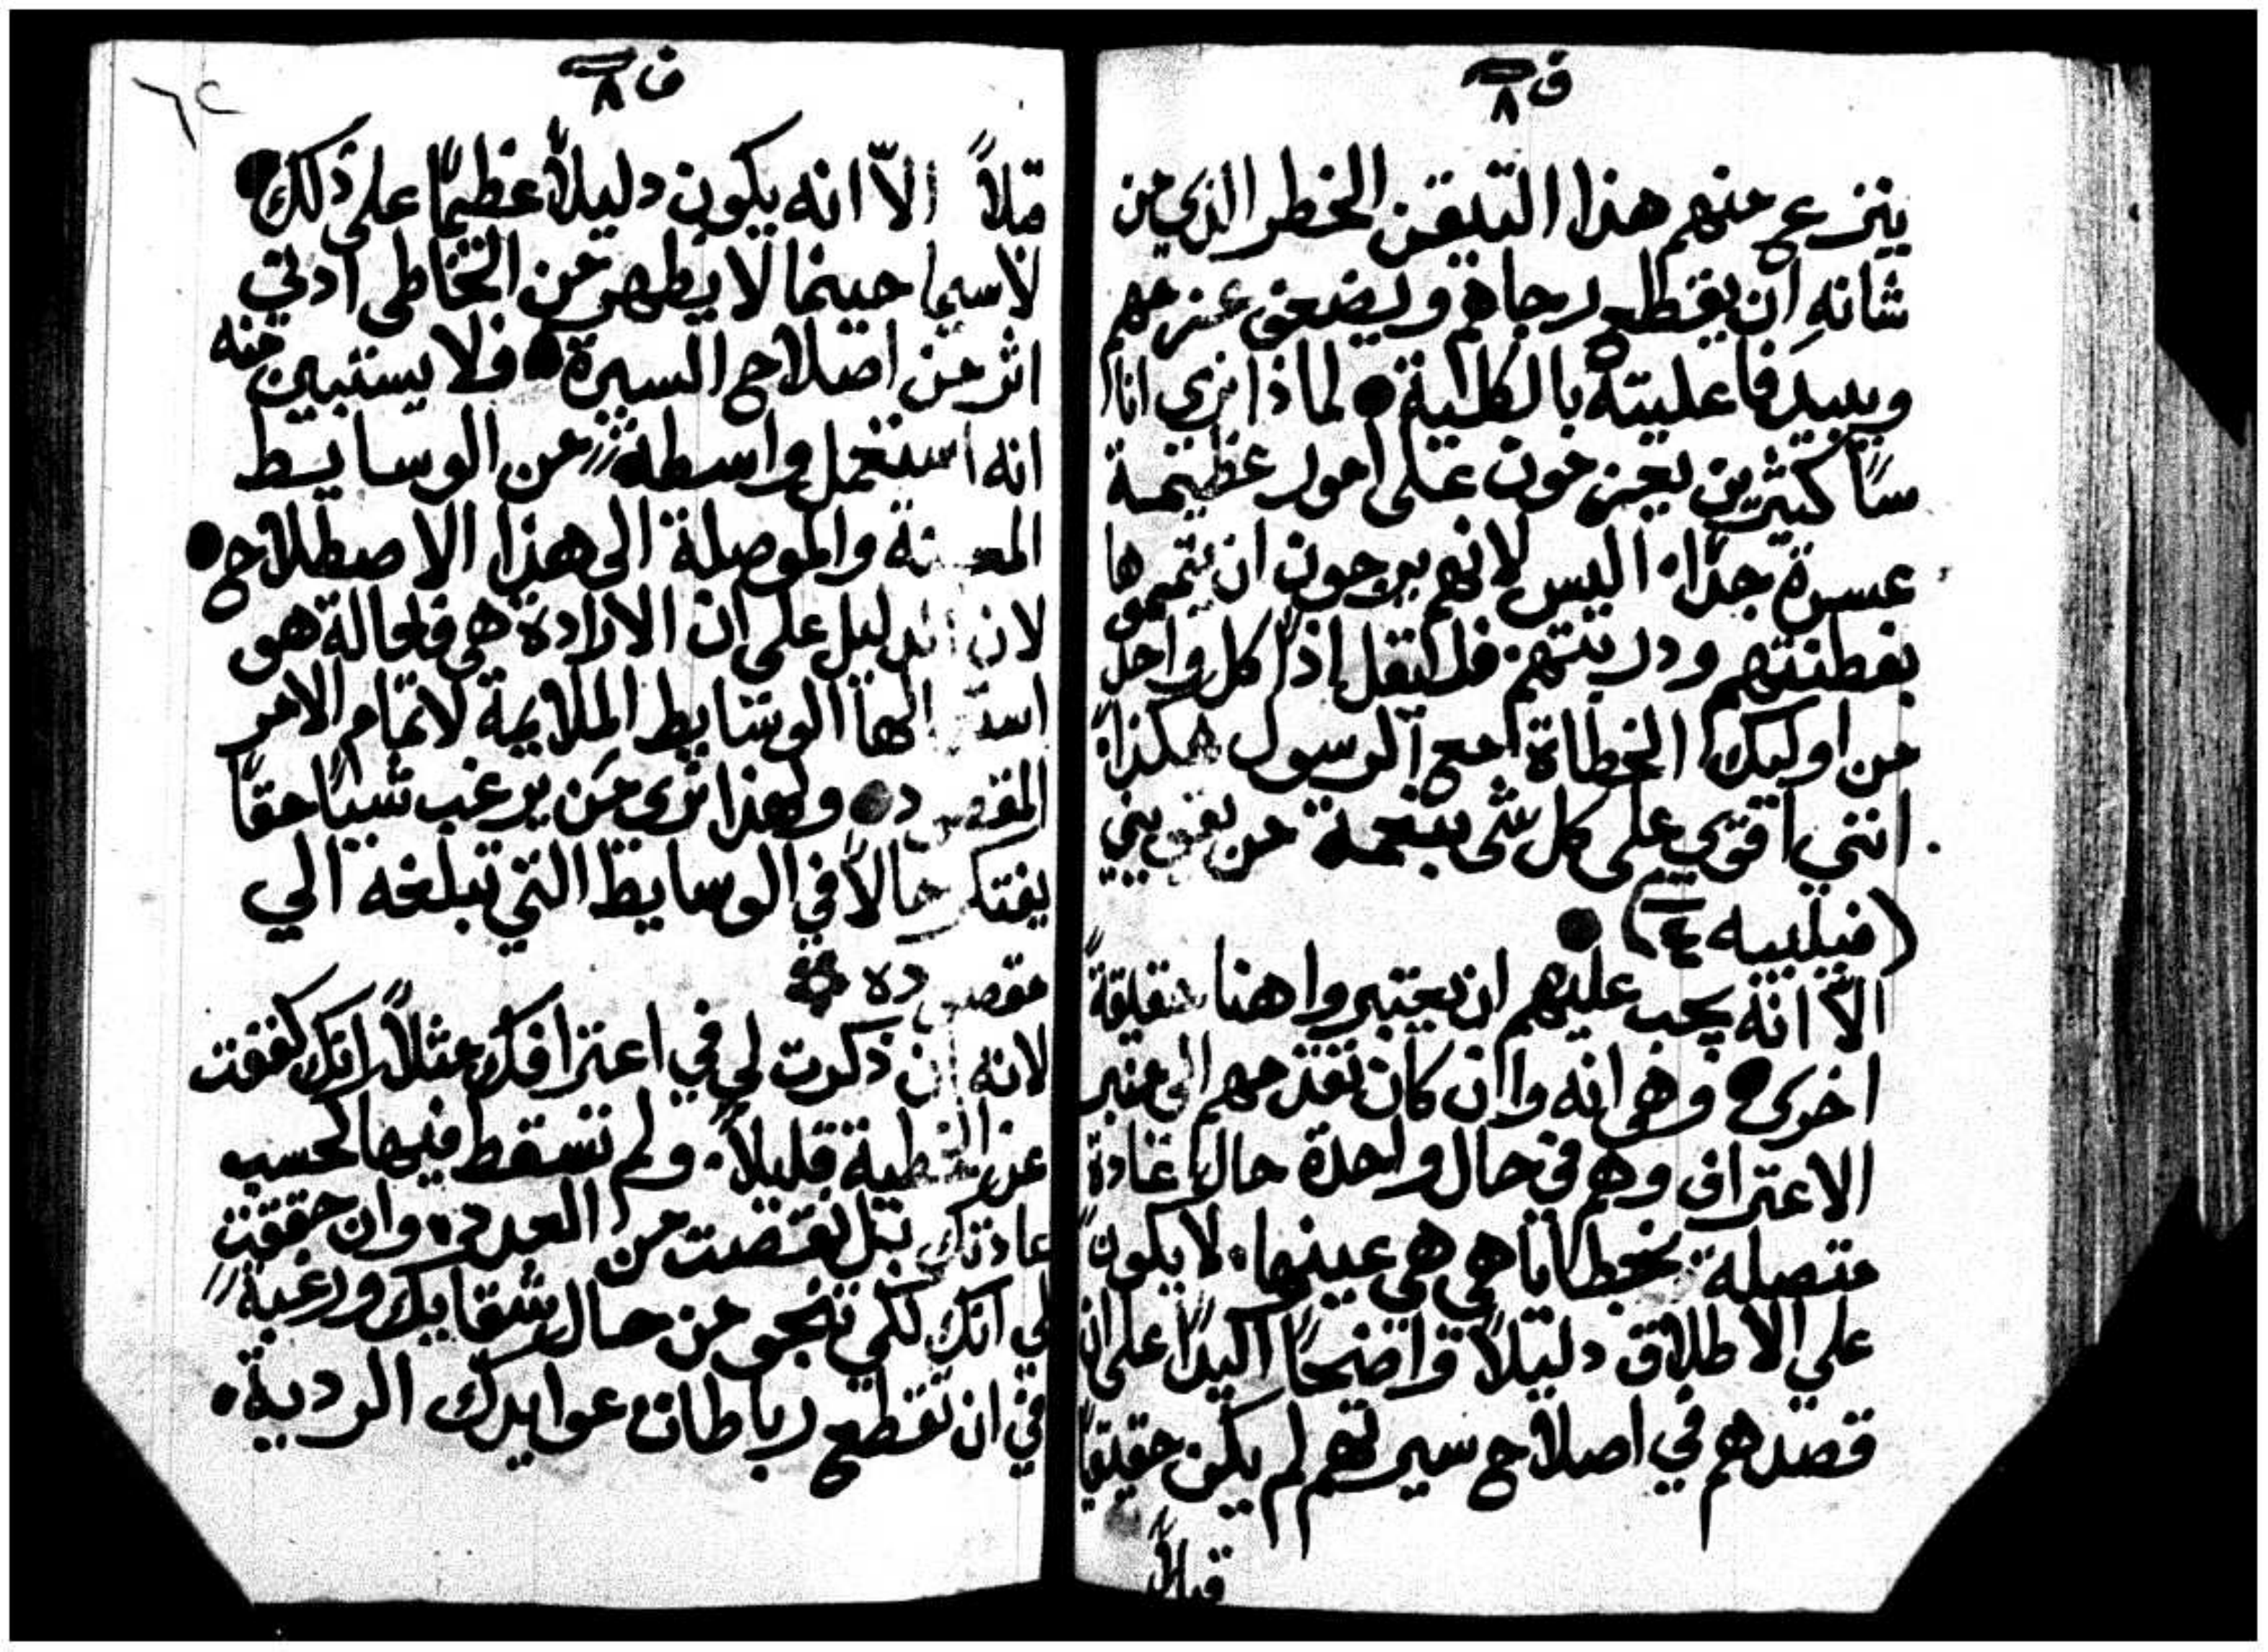 ق ٨
ينزع عنهم هذا التيقن الخطر الذي من
شانه ان يقطع رجاهم ويضعف عزمهم
ويبيد فاعليته بالكلية • لماذا نري انا
سًا كثيرين يعزمون على امور عظيمة
عسرة جدًا. اليس لانهم يرجون ان يتمموها
بفطنتهم ودربتهم. فليقل اذًا كل واحد
من اوليك الخطاة مع الرسول هكذا.
انني اقوي على كل شي بنعمة من يقويني
(فيلبيه ٤) •
الاّ انه يجب عليهم ان يعتبروا هنا حقيقةً
اخرى • وهي انه وان كان تقدمهم الى منبر
الاعتراف وهم في حال واحدة حال عادة
متصلة بخطايا هي هي عينها. لا يكون
علي الاطلاق دليلاً واضحًا اكيدًا على ان
قصدهم في اصلاح سيرتهم لم يكن حقيقيًا
قبلاً
ق ٨
٦٢
قبلاً الاّ انه يكون دليلاً عظيمًا على ذلك •
لاسيما حينما لا يظهر من الخاطي ادني
اثر من اصلاح السيرة • فلا يستبين منه
انه استعمل واسطة من الوسايط
المعينة والموصلة الى هذا الاصطلاح •
لان الدليل على ان الارادة هي فعالة هو
استعمالها الوسايط الملايمة لاتمام الامر
المقصود • ولهذا نري من يرغب شيًا حقًا
يفتكر حالاً في الوسايط التي تبلغه الي
مقصوده
لانه ان ذكرت لي في اعترافك مثلاً انك كففت
عن الخطية قليلاً. ولم تسقط فيها كحسب
عادتك بل نقصت من العدد. وان حققت
لي انك لكي تنجو من حال شقايك ورغبة
في ان تقطع رباطات عوايدك الردية.